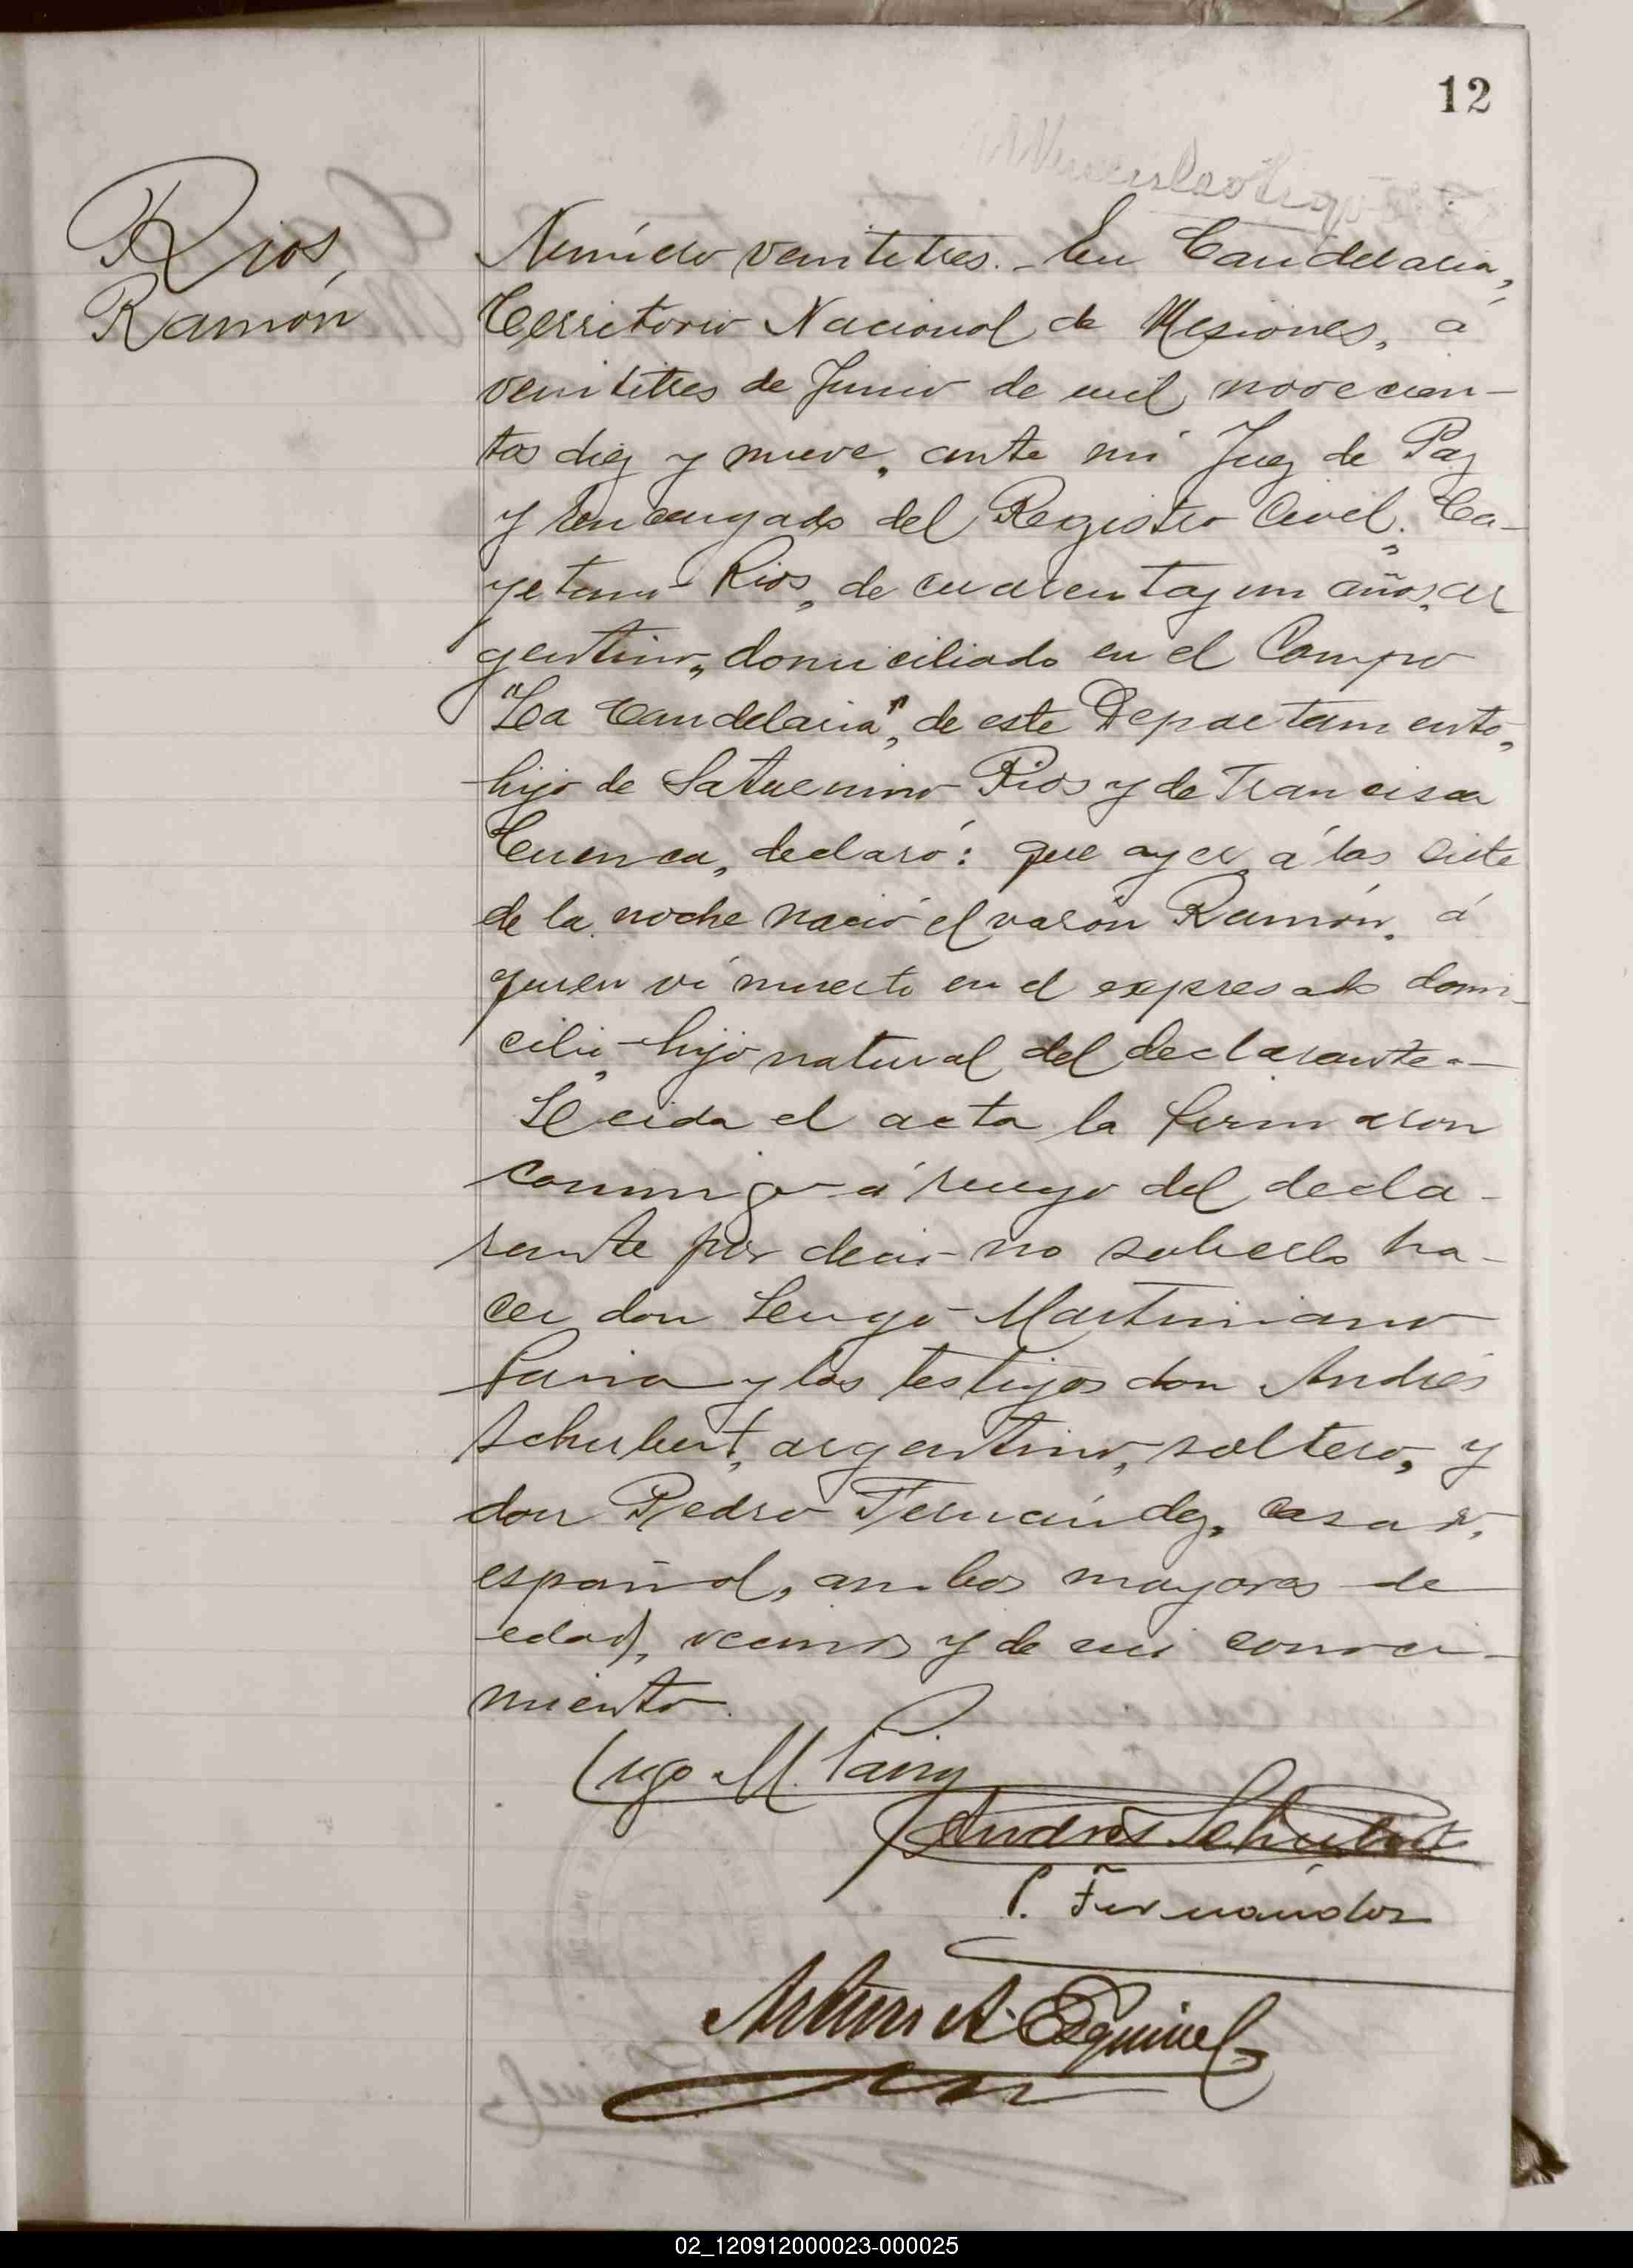 12
Rios,
Ramón
Número veintitres.- En Candelaria,
Territorio Nacional de Misiones, a
veintitres de Junio de mil novecien-
tos diez y nueve, ante mi Juez de Paz
y Encargado del Registro Civil, Ca-
yetano Rios, de cuarenta y un años, ar
gentino, domiciliado en el Campo
"La Candelaria", de este Departamento,
hijo de Saturnino Rios y de Francisca
Cuenca, declaró: que ayer á las siete
de la noche nació el varón Ramón, á
quien vi muerto en el expresado domi-
cilio, hijo natural del declarante.-
Leida el acta la firmaron
conmigo á ruego del decla-
rante por decir no saberlo ha-
cer don Lugo Martiniano
Paina y los testigos don Andrés
Schubert, argentino, soltero, y
don Pedro Fernández, casado,
español, ambos mayores de
edad, vecinos y de mi conoci-
miento.
Lugo M. Paina
Andrés Schubert
P. Fernández
Arturo A. Esquivel
02_120912000023-000025